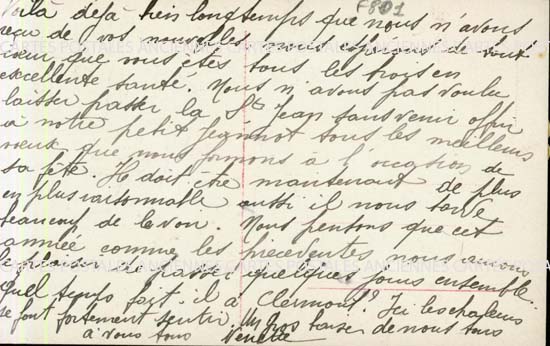 F801
Voilà déjà bien longtemps que nous n'avons
reçu de vos nouvelles, nous espérons de tout
cœur que vous êtes tous les trois en
excellente santé. Nous n'avons pas voulu
laisser passer la St Jean sans venir offrir
à notre petit Jeannot tous les meilleurs
vœux que nous formons à l'occasion de
sa fête. Il doit être maintenant de plus
en plus raisonnable aussi il nous tarde
beaucoup de le voir. Nous pensons que cet
année comme les précédentes nous aurons
de passer quelques jours ensemble.
Quel temps fait-il à Clermont? Ici les chaleurs
se font fortement sentir. Un gros baiser de nous tous
à vous tous
CARTES POSTALES ANCIENNES CARTES POSTALES ANCIENNES